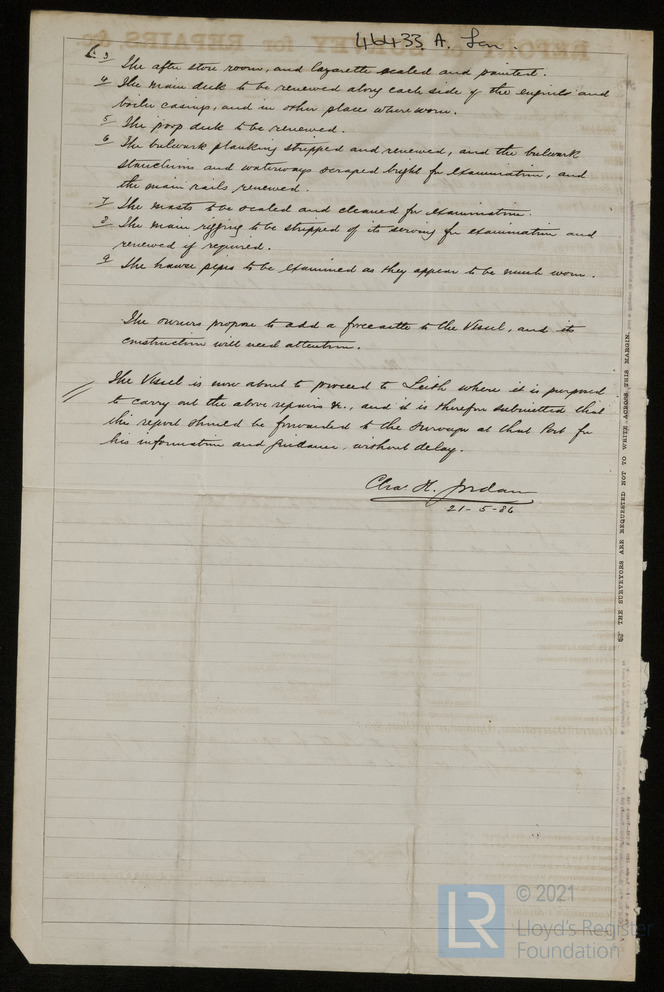 46433 A. Lon.
3 The after store room, and lazarette scaled and painted.
4 The main deck to be renewed along each side of the engine and
boiler casings, and in other places where worn.
5 The poop deck to be renewed.
6 The bulwark planking stripped and renewed, and the bulwark
stanchions and waterways scraped bright for examination, and
the main rails renewed.
7 The masts to be scaled and cleaned for examination.
8 The main rigging to be stripped of its serving for examination and
renewed if required.
9 The hawse pipes to be examined as they appear to be much worn.
The owners propose to add a forecastle to the Vessel, and its
construction will need attention.
The Vessel is now about to proceed to Leith where it is purposed
to carry out the above repairs &c., and it is therefore submitted that
this report should be forwarded to the Surveyor at that Port for
his information and guidance, without delay.
Chas H. Jordan
21-5-86
THE SURVEYORS ARE REQUESTED NOT TO WRITE ACROSS THIS MARGIN.
LR
© 2021
Lloyd's Register
Foundation